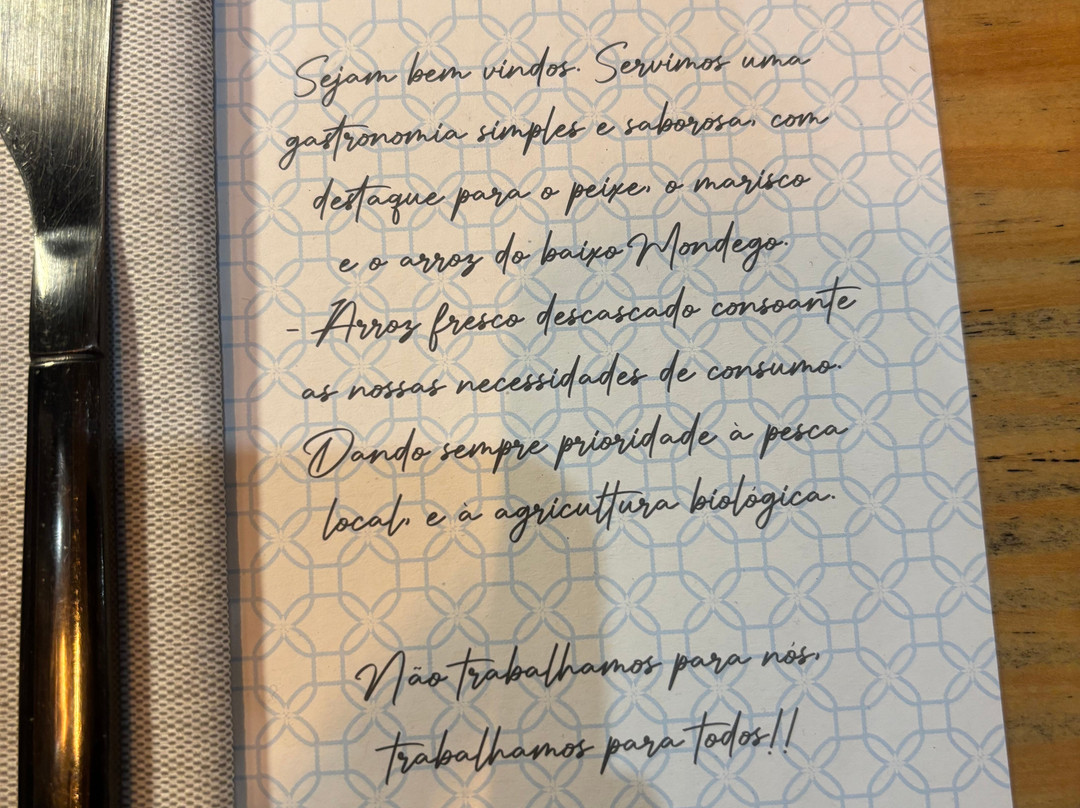 Sejam bem vindos. Servimos uma
gastronomia simples e saborosa, com
destaque para o peixe, o marisco
e o arroz do baixo Mondego.
- Arroz fresco descascado consoante
as nossas necessidades de consumo.
Dando sempre prioridade à pesca
local, e à agricultura biológica.
Não trabalhamos para nós,
trabalhamos para todos!!